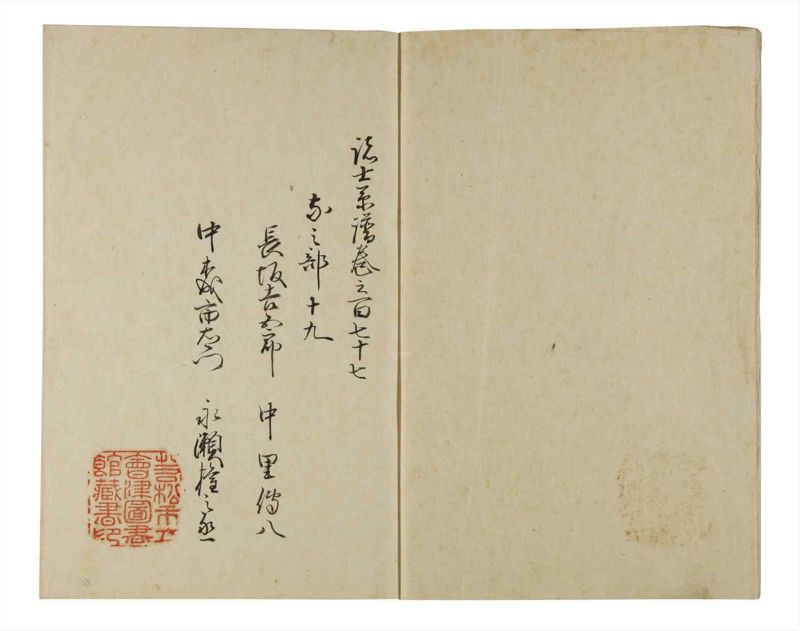 諸士系譜巻之百七十七
な之部十九
長坂吉五郎　中里傳八
中　市　門　永瀬権之丞
若松市立
會津圖書
館藏書印